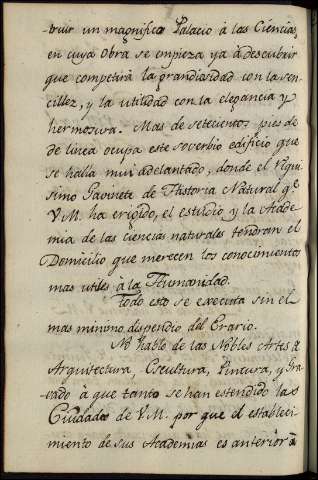 -truir un magnifico Palacio à las Ciencias,
en cuya Obra se empieza ya à descubrir
que competirà la grandiosidad con la sen-
cillez, y la utilidad con la elegancia y
hermosura. Mas de setecientos pies de
de linea ocupa este sovervio edificio que
se halla mui adelantado, donde el riqui-
simo Gavinete de Historia Natural qe.
V.M. ha erigido, el estudio y la Acade-
mia de las ciencias naturales tendran el
Domicilio que merecen los conocimientos
mas utiles à la Humanidad.
Todo esto se executa sin el
mas minimo dispendio del Erario.
No hablo de las Nobles Artes de
Arquitectura, Escultura, Pintura, y Gra-
-vado à que tanto se han estendido las
Cuidados de V.M. por que el estableci-
miento de sus Academias es anterior à